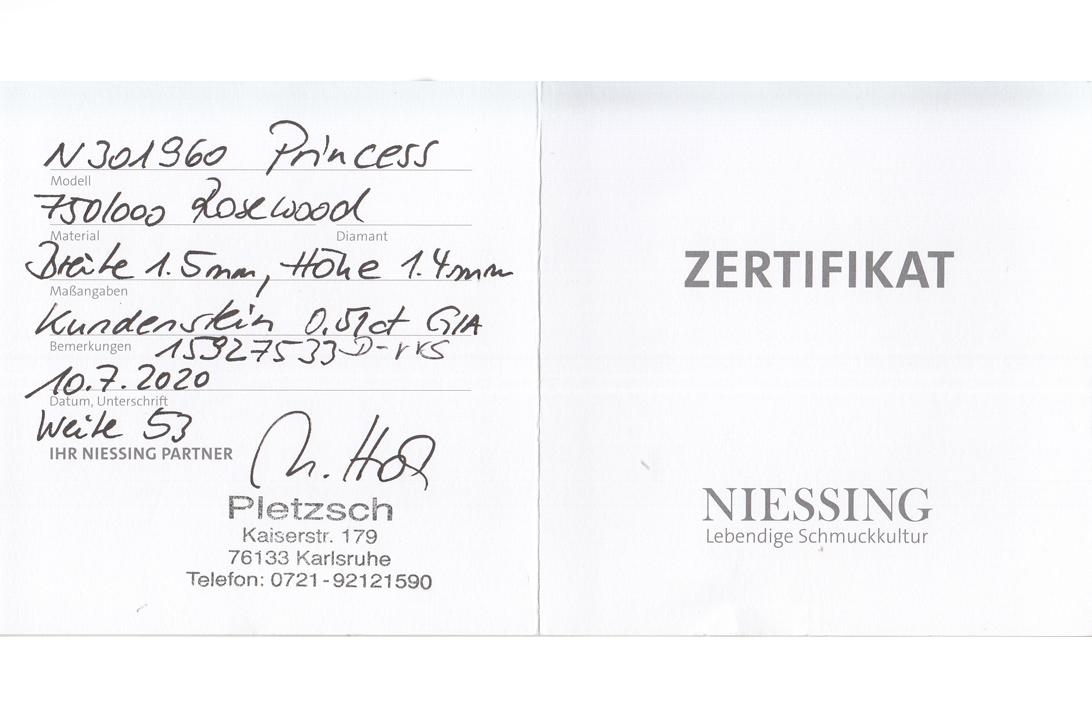 N301960 Princess
Modell
750/000 Rosewood
Material Diamant
Breite 1.5mm, Höhe 1.4mm
Maßangaben
Kundenstein 0.51ct GIA
Bemerkungen 15927533 D-VVS
10.7.2020
Datum, Unterschrift
Weite 53
IHR NIESSING PARTNER
Pletzsch
Kaiserstr. 179
76133 Karlsruhe
Telefon: 0721-92121590
ZERTIFIKAT
NIESSING
Lebendige Schmuckkultur